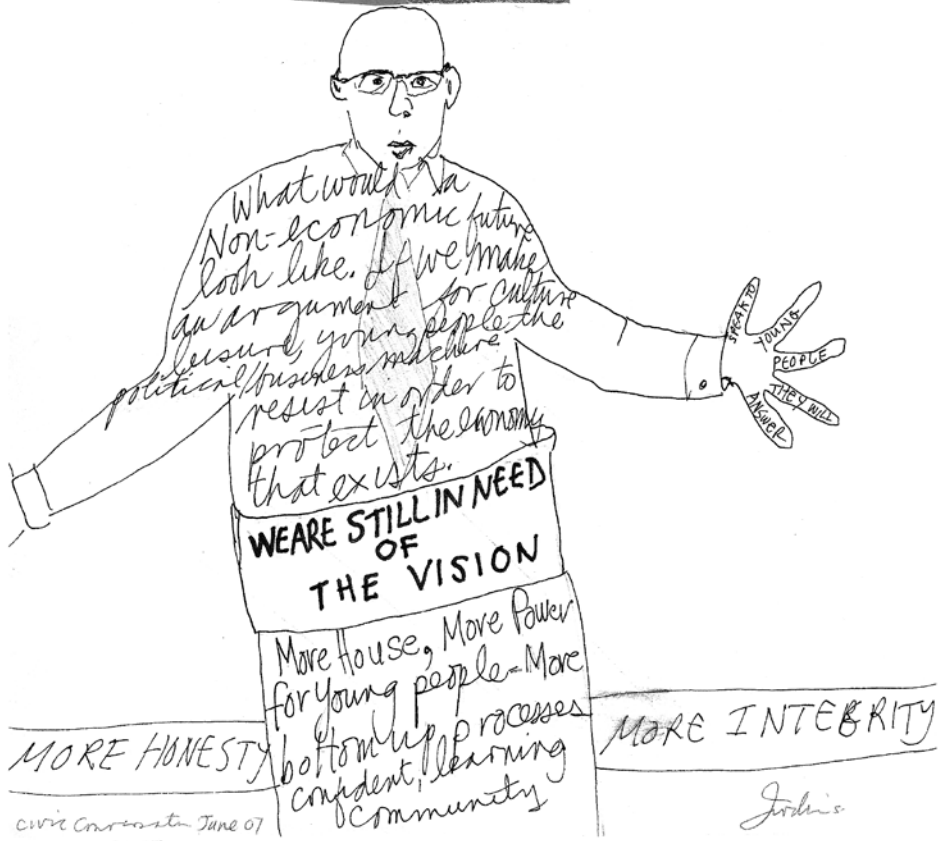 What would a
Non-economic future
look like. If we make
an argument for culture
leisure, young people the
political/business machine
resist in order to
protect the economy
that exists.
SPEAK TO
YOUNG
PEOPLE
THEY WILL
ANSWER
WE ARE STILL IN NEED
OF
THE VISION
More House, More Power
for young people - More
bottom up processes
confident, learning
community
MORE HONESTY
MORE INTEGRITY
civic Conversation June 07